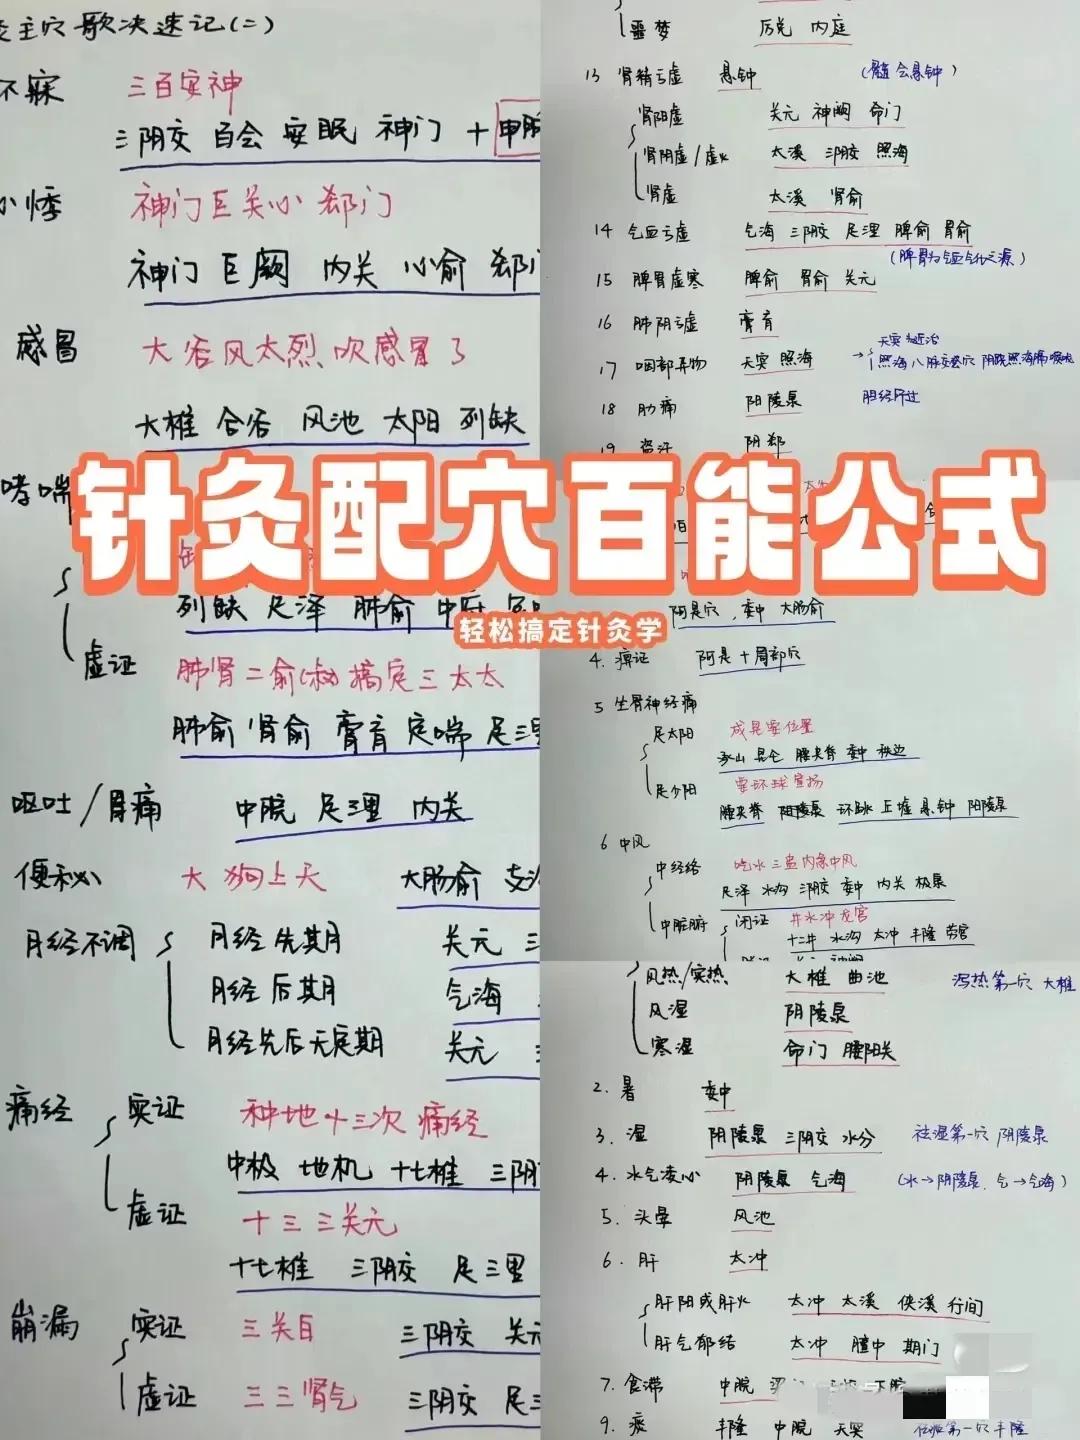 主穴歌决速记(二)
不寐 三百安神
三阴交 百会 安眠 神门 + 申脉
心悸 神门巨关心郄门
神门 巨阙 内关 心俞 郄门
感冒 大谷风太烈、吹感冒了
大椎 合谷 风池 太阳 列缺
哮喘
列缺 尺泽 肺俞 中府
虚证 肺肾二俞(叔)搞定三太太
肺俞 肾俞 膏肓 定喘 足三里
呕吐/胃痛 中脘 足三里 内关
便秘 大狗上天 大肠俞 支沟
月经不调 月经先期 关元 三
月经后期 气海
月经先后无定期 关元
痛经 实证 种地十三次痛经
中极 地机 十七椎 三阴
虚证 十三三关元
十七椎 三阴交 足三里
崩漏 实证 三关自 三阴交 关元
虚证 三三肾气 三阴交 足三
噩梦 厉兑 内庭
13 肾精亏虚 悬钟 (髓会悬钟)
肾阳虚 关元 神阙 命门
肾阴虚/虚火 太溪 三阴交 照海
肾虚 太溪 肾俞
14 气血亏虚 气海 三阴交 足三里 脾俞 胃俞
(脾胃为气血生化之源)
15 脾胃虚寒 脾俞 胃俞 关元
16 肺阴亏虚 膏肓
17 咽部异物 天突 照海 → 天突 近治
照海八脉交会穴 阴跷照海膈喉咙
18 胁痛 阳陵泉 胆经所过
19 盗汗 阴郄
针灸配穴百能公式
轻松搞定针灸学
阿是穴、委中 大肠俞
4. 痹证 阿是+局部穴
5 坐骨神经痛
足太阳 成昆要位置
承山 昆仑 腰夹脊 委中 秩边
足少阳 要环球宣扬
腰夹脊 阳陵泉 环跳 丘墟 悬钟 阳陵泉
6 中风
中经络 吃水三盅内急中风
尺泽 水沟 三阴交 委中 内关 极泉
中脏腑 闭证 井水冲龙宫
十二井 水沟 太冲 丰隆 劳宫
风热/实热 大椎 曲池 泻热第一穴 大椎
风湿 阴陵泉
寒湿 命门 腰阳关
2. 暑 委中
3. 湿 阴陵泉 三阴交 水分 祛湿第一穴 阴陵泉
4. 水气凌心 阴陵泉 气海 (水→阴陵泉、气→气海)
5. 头晕 风池
6. 肝 太冲
肝阳或肝火 太冲 太溪 侠溪 行间
肝气郁结 太冲 膻中 期门
7. 食滞 中脘
9. 痰 丰隆 中脘 天突 第一穴丰隆